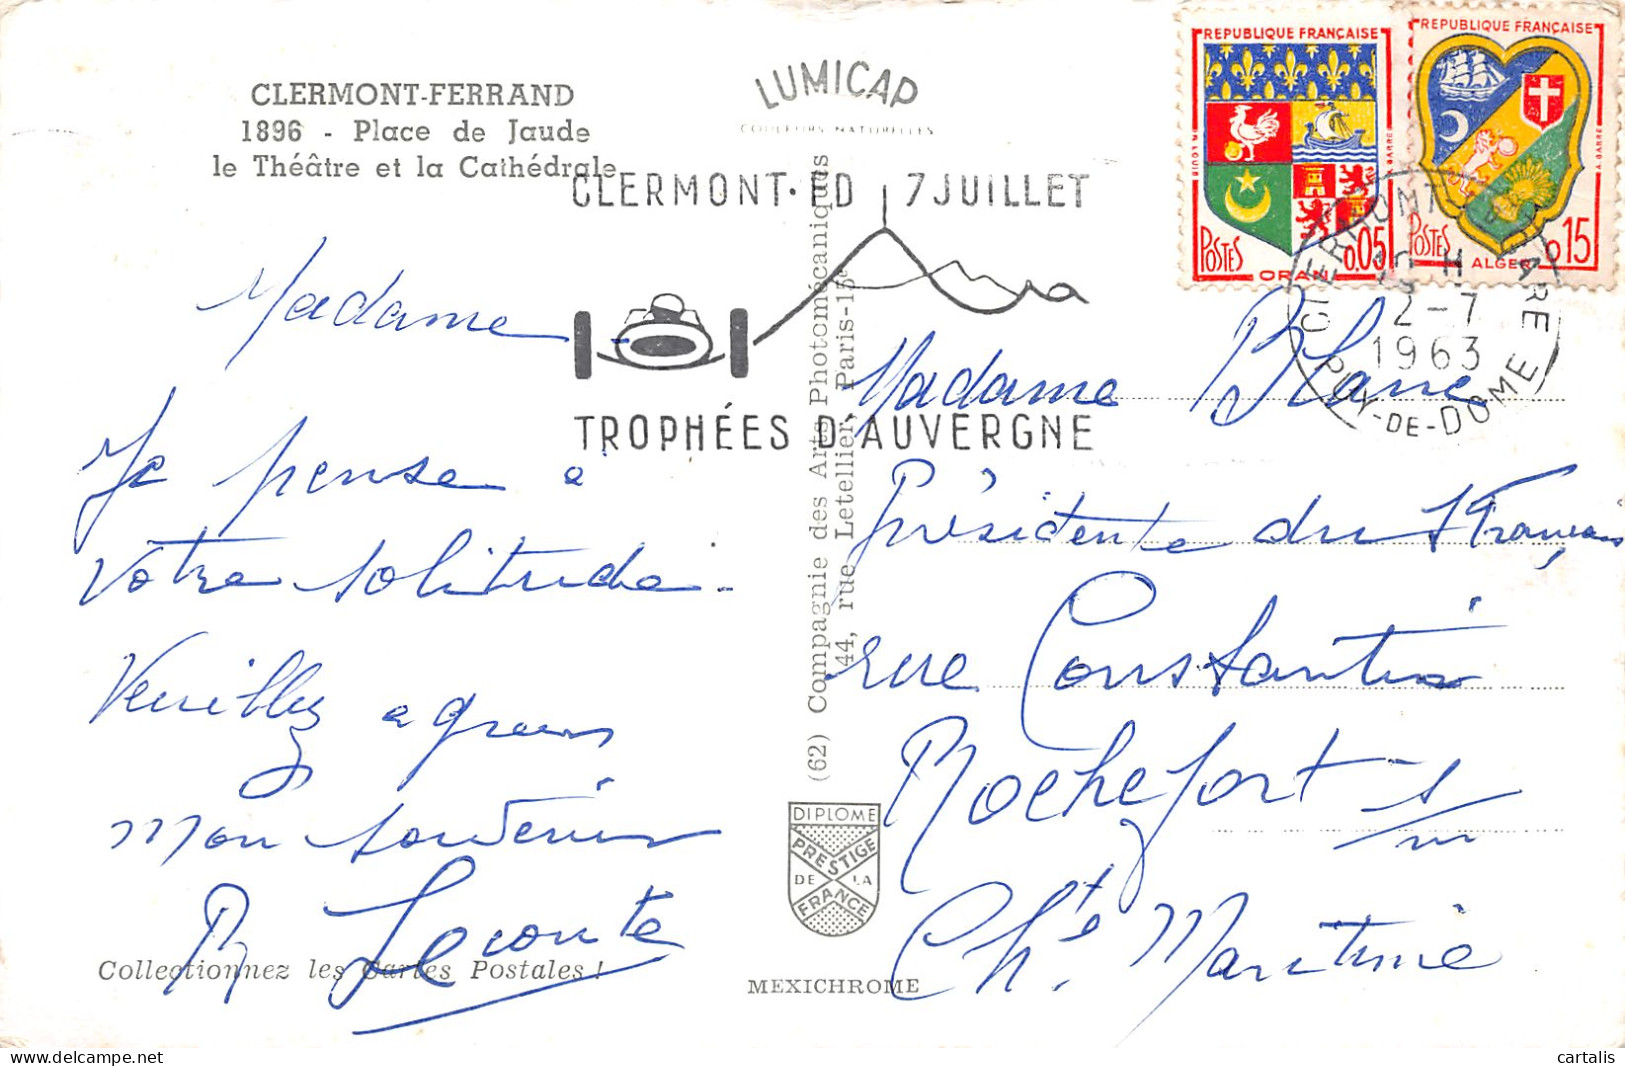 CLERMONT-FERRAND
1896 - Place de Jaude
le Théâtre et la Cathédrale
LUMICAP
COULEURS NATURELLES
CLERMONT-FD 7 JUILLET
TROPHÉES D'AUVERGNE
REPUBLIQUE FRANÇAISE
POSTES
0.05
ORAN
REPUBLIQUE FRANÇAISE
POSTES
0.15
ALGER
CLERMONT FD GARE
H
2-7
1963
PUY-DE-DOME
Madame
Je pense à
Votre solitude.
Veuillez agréer
mon souvenir
Leconte
Madame Blanc
Présidente du
rue Constantin
Rochefort s/
m
Chte Maritime
(62) Compagnie des Arts Photomécaniques
44, rue Letellier, Paris-15e
DIPLOME
PRESTIGE
DE LA
FRANCE
Collectionnez les Cartes Postales !
MEXICHROME
cartalis